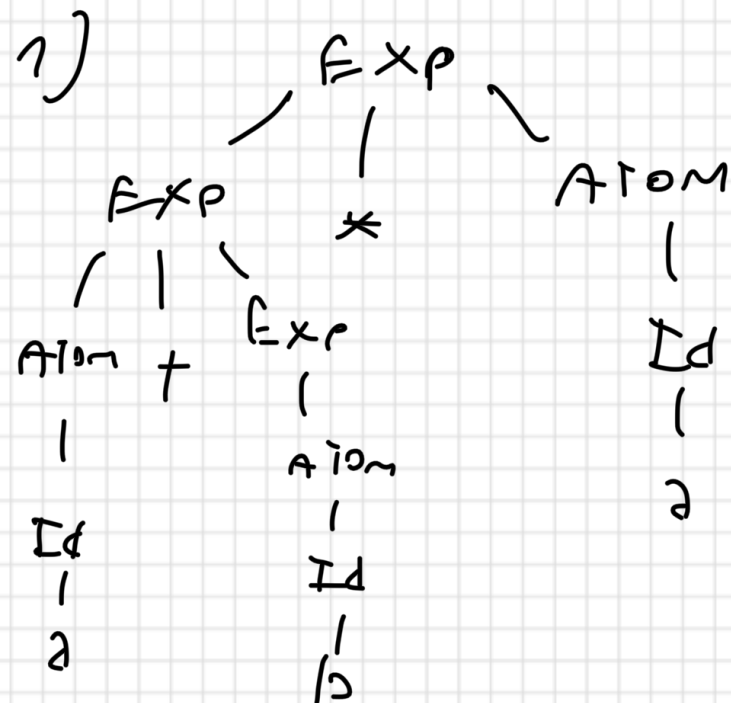 1) Exp
Exp * Atom
Atom + Exp Id
Atom a
Id Id
a b